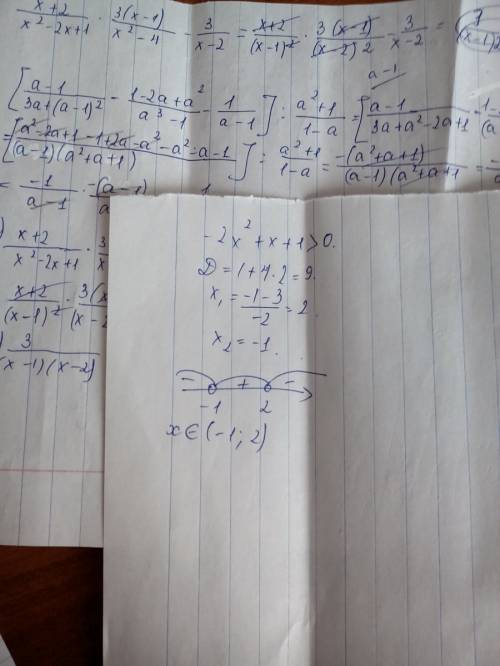 x+2/(x²-2x+1) · 3(x-1)/(x²-4) - 3/(x-2) = (x+2)/(x-1)² · 3(x-1)/(x-2)2 - 3/(x-2) =
a-1
[(a-1)/(3a+(a-1)²) - (1-2a+a²)/(a³-1) - 1/(a-1)] : (a²+1)/(1-a) = [(a-1)/(3a+a²-2a+1) -
= [(a²-2a+1-1+2a-a²-a²-a-1)/((a-1)(a²+a+1))] : (a²+1)/(1-a) = -(a²+a+1)/((a-1)(a²+a+1
= -1/(a-1) · -(a-1)/
(x+2)/(x²-2x+1) ·
(x+2)/(x-1)² ·
3/((x-1)(x-2)
-2x²+x+1>0.
D=1+4·2=9.
x₁=(-1-3)/-2=2.
x₂=-1.
- + -
-1 2
x∈(-1;2)